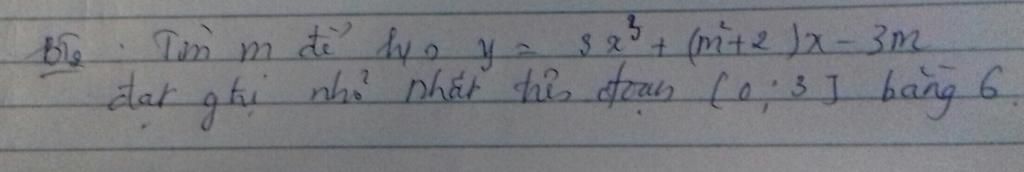 Tìm m để hs y = 3x³ + (m²+2)x - 3m
đạt gtrị nhỏ nhất trên đoạn [0; 3] bằng 6.